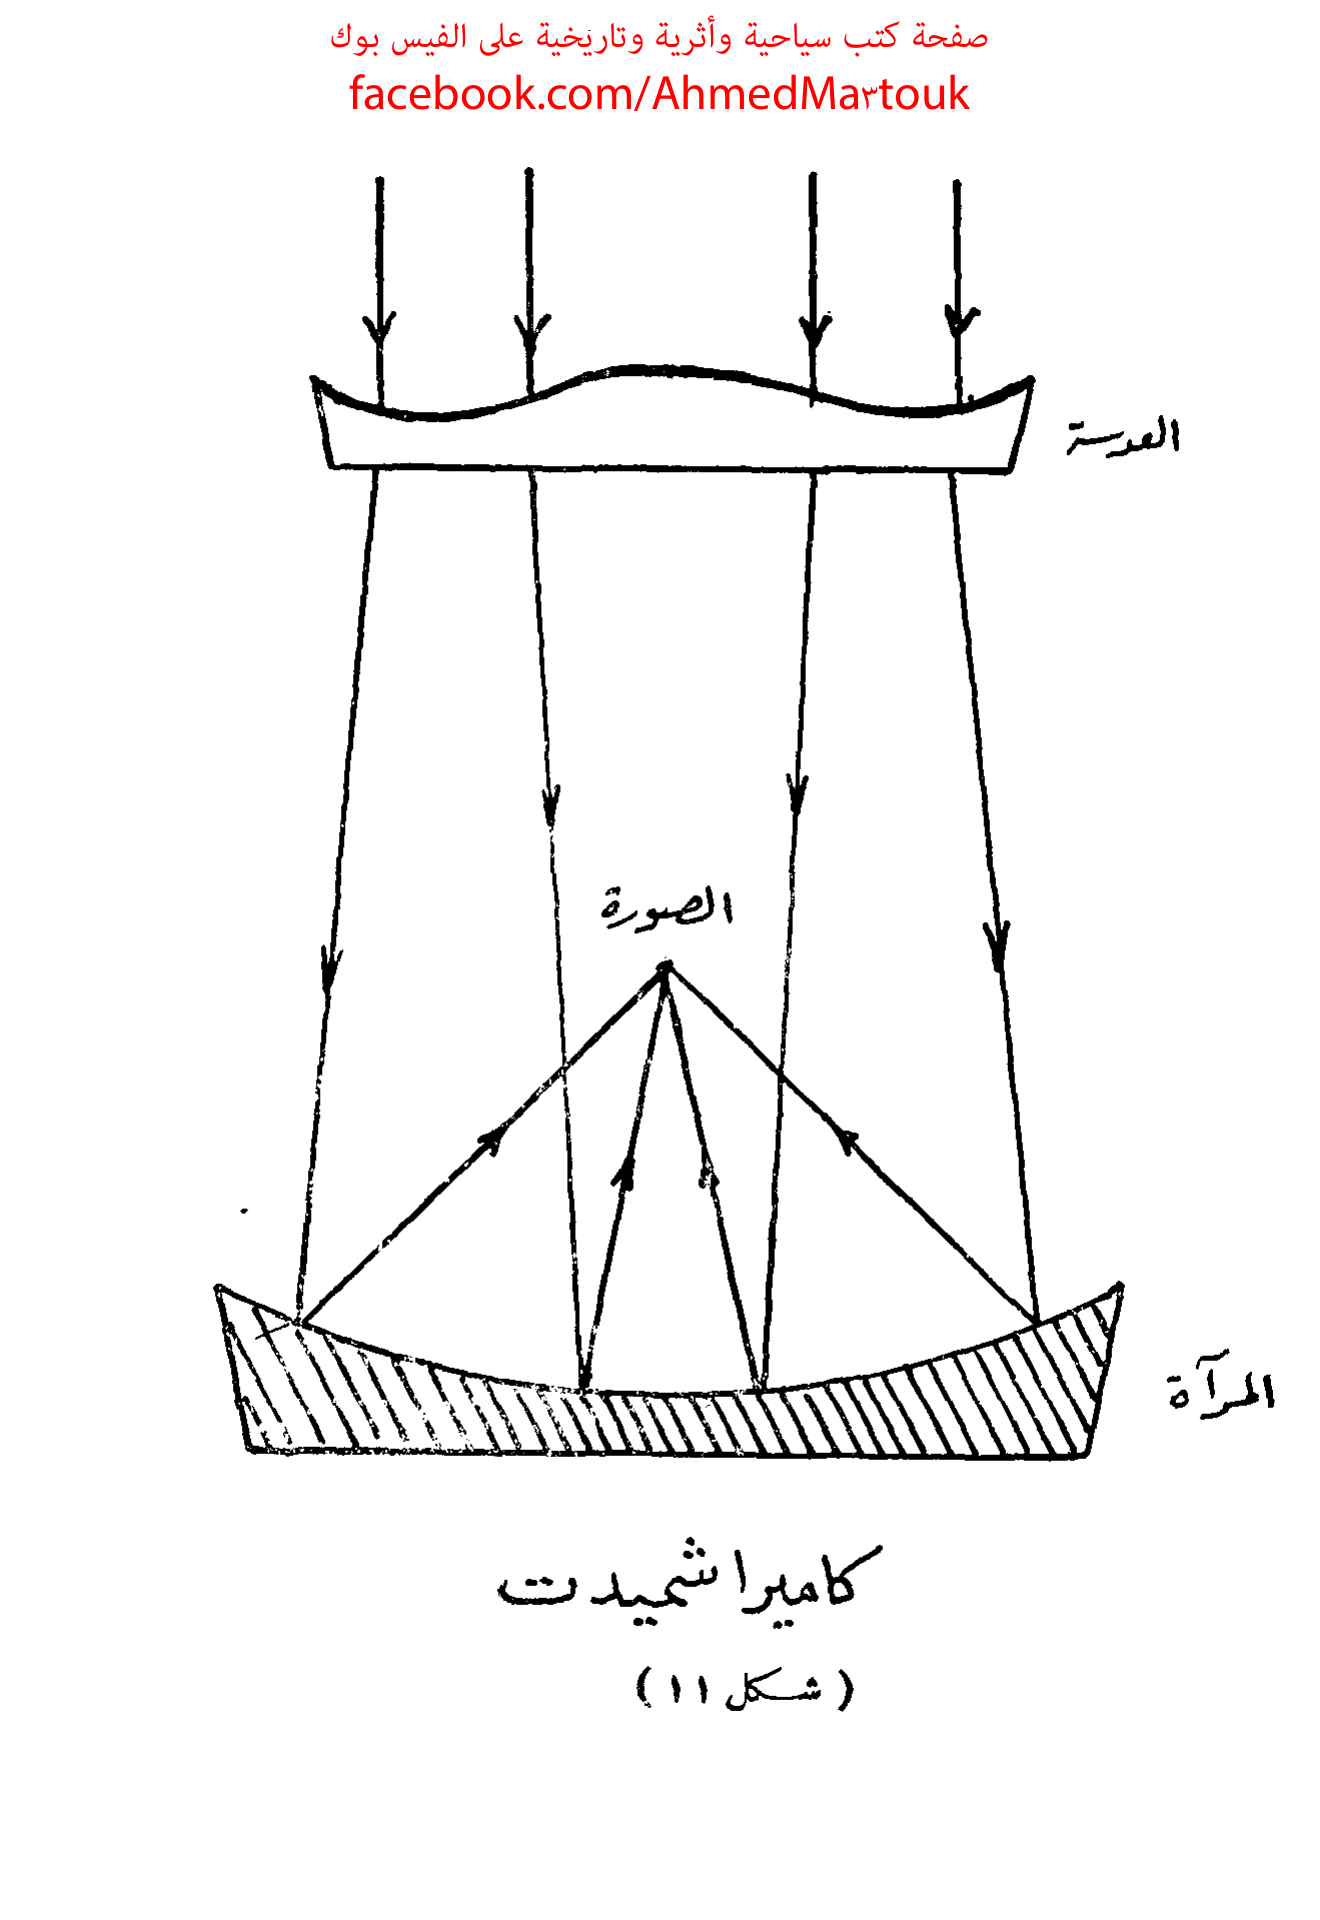 صفحة كتب سياحية وأثرية وتاريخية على الفيس بوك
facebook.com/AhmedMa٣touk
العدسة
الصورة
المرآة
كاميرا شميدت
( شكل ١١ )